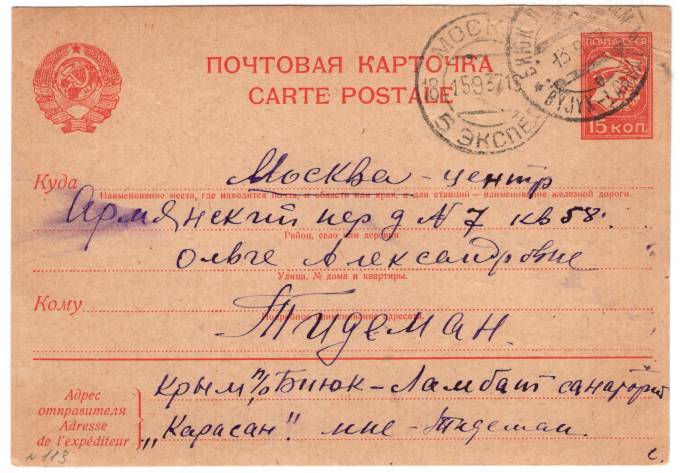 ПОЧТОВАЯ КАРТОЧКА
CARTE POSTALE
ПОЧТА СССР
15 КОП.
МОСКВА
18-15 9 37 19
5 ЭКСПЕД
БИЮК
13 9
BYJYK-
Куда
Москва - центр
Наименование места, где находится почта, и области или края, а для станций — наименование железной дороги.
Армянский пер д N 7 кв 58.
Район, село или деревня.
Ольге Александровне
Улица, № дома и квартиры.
Кому
Тидеман.
Подробное наименование адресата.
Адрес
отправителя
Adresse
de l'expéditeur
Крым п/о Биюк-Ламбат санаторий
„Карасан" мне - Тидеман.
N 113
с.